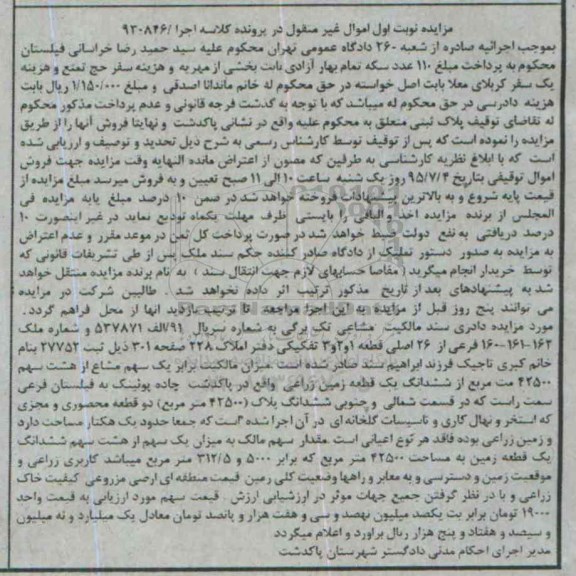 مزایده نوبت اول اموال غیر منقول در پرونده کلاسه اجرا /۹۳۰۸۴۶
بموجب اجرائیه صادره از شعبه ۲۶۰ دادگاه عمومی تهران محکوم علیه سید حمید رضا خراسانی فیلستان
محکوم به پرداخت مبلغ ۱۱۰ عدد سکه تمام بهار آزادی بابت بخشی از مهریه و هزینه سفر حج تمتع و هزینه
یک سفر کربلای معلا بابت اصل خواسته در حق محکوم له خانم ماندانا اصدقی و مبلغ ۱/۱۵۰/۰۰۰ ریال بابت
هزینه دادرسی در حق محکوم له میباشد که با توجه به گذشت فرجه قانونی و عدم پرداخت مذکور محکوم
له تقاضای توقیف پلاک ثبتی متعلق به محکوم علیه واقع در نشانی پاکدشت و نهایتا فروش آنها را از طریق
مزایده را نموده است که پس از توقیف توسط کارشناس رسمی به شرح ذیل تحدید و توصیف و ارزیابی شده
است که با ابلاغ نظریه کارشناسی به طرفین که مصون از اعتراض مانده النهایه وقت مزایده جهت فروش
اموال توقیفی بتاریخ ۹۵/۷/۴ روز یک شنبه ساعت ۱۰ الی ۱۱ صبح تعیین و به فروش میرسد مبلغ مزایده از
قیمت پایه شروع و به بالاترین پیشنهادات فروخته خواهد شد در ضمن ۱۰ درصد مبلغ پایه مزایده فی
المجلس از برنده مزایده اخذ و الباقی را بایستی ظرف مهلت یکماه تودیع نماید در غیر اینصورت ۱۰
درصد دریافتی به نفع دولت ضبط خواهد شد در صورت پرداخت کل ثمن در موعد مقرر و عدم اعتراض
به مزایده به صدور دستور تملیک از دادگاه صادر کننده حکم سند ملک پس از طی تشریفات قانونی که
توسط خریدار انجام میگیرد ( مفاصا حسابهای لازم جهت انتقال سند ) به نام برنده مزایده منتقل خواهد
شد به پیشنهادهای بعد از تاریخ مذکور ترتیب اثر داده نخواهد شد طالبین شرکت در مزایده
می توانند پنج روز قبل از مزایده به این اجرا مراجعه تا ترتیب بازدید آنها از محل فراهم گردد.
مورد مزایده دادری سند مالکیت مشاعی تک برگی به شماره سریال ۹۱/الف ۵۳۷۸۷۱ و شماره ملک
۱۶۲-۱۶۱-۱۶۰ فرعی از ۲۶ اصلی قطعه ۱و۲و۳ تفکیکی دفتر املاک ۲۲۸ صفحه ۳۰۱ ذیل ثبت ۲۷۷۵۲ بنام
خانم کبری تاجیک فرزند ابراهیم سند صادر شده است میزان مالکیت برابر یک سهم مشاع از هشت سهم
۴۲۵۰۰ مت مربع از ششدانگ یک قطعه زمین زراعی واقع در پاکدشت جاده پوئینک به فیلستان فرعی
سمت راست که در قسمت شمالی و جنوبی ششدانگ پلاک (۴۲۵۰۰ متر مربع) دو قطعه محصوری و مجزی
که استخر و نهال کاری و تاسیسات گلخانه ای در آن اجرا شده است که جمعا حدود یک هکتار مساحت دارد
و زمین زراعی بوده فاقد هر نوع اعیانی است مقدار سهم مالک به میزان یک سهم از هشت سهم ششدانگ
یک قطعه زمین به مساحت ۴۲۵۰۰ متر مربع که برابر ۵۰۰۰ و ۳۱۲/۵ متر مربع میباشد کاربری زراعی و
موقعیت زمین و دسترسی و به معابر و راهها وضعیت کلی زمین قیمت منطقه ای ارضی مزروعی کیفیت خاک
زراعی و با در نظر گرفتن جمیع جهات موثر در ارزشیابی ارزش قیمت سهم مورد ارزیابی به قیمت واحد
۱۹۰۰۰ تومان برابر بت یکصد میلیون نهصد و سی و هفت هزار و پانصد تومان معادل یک میلیارد و نه میلیون
و سیصد و هفتاد و پنج هزار ریال براورد و اعلام میگردد
مدیر اجرای احکام مدنی دادگستر شهرستان پاکدشت